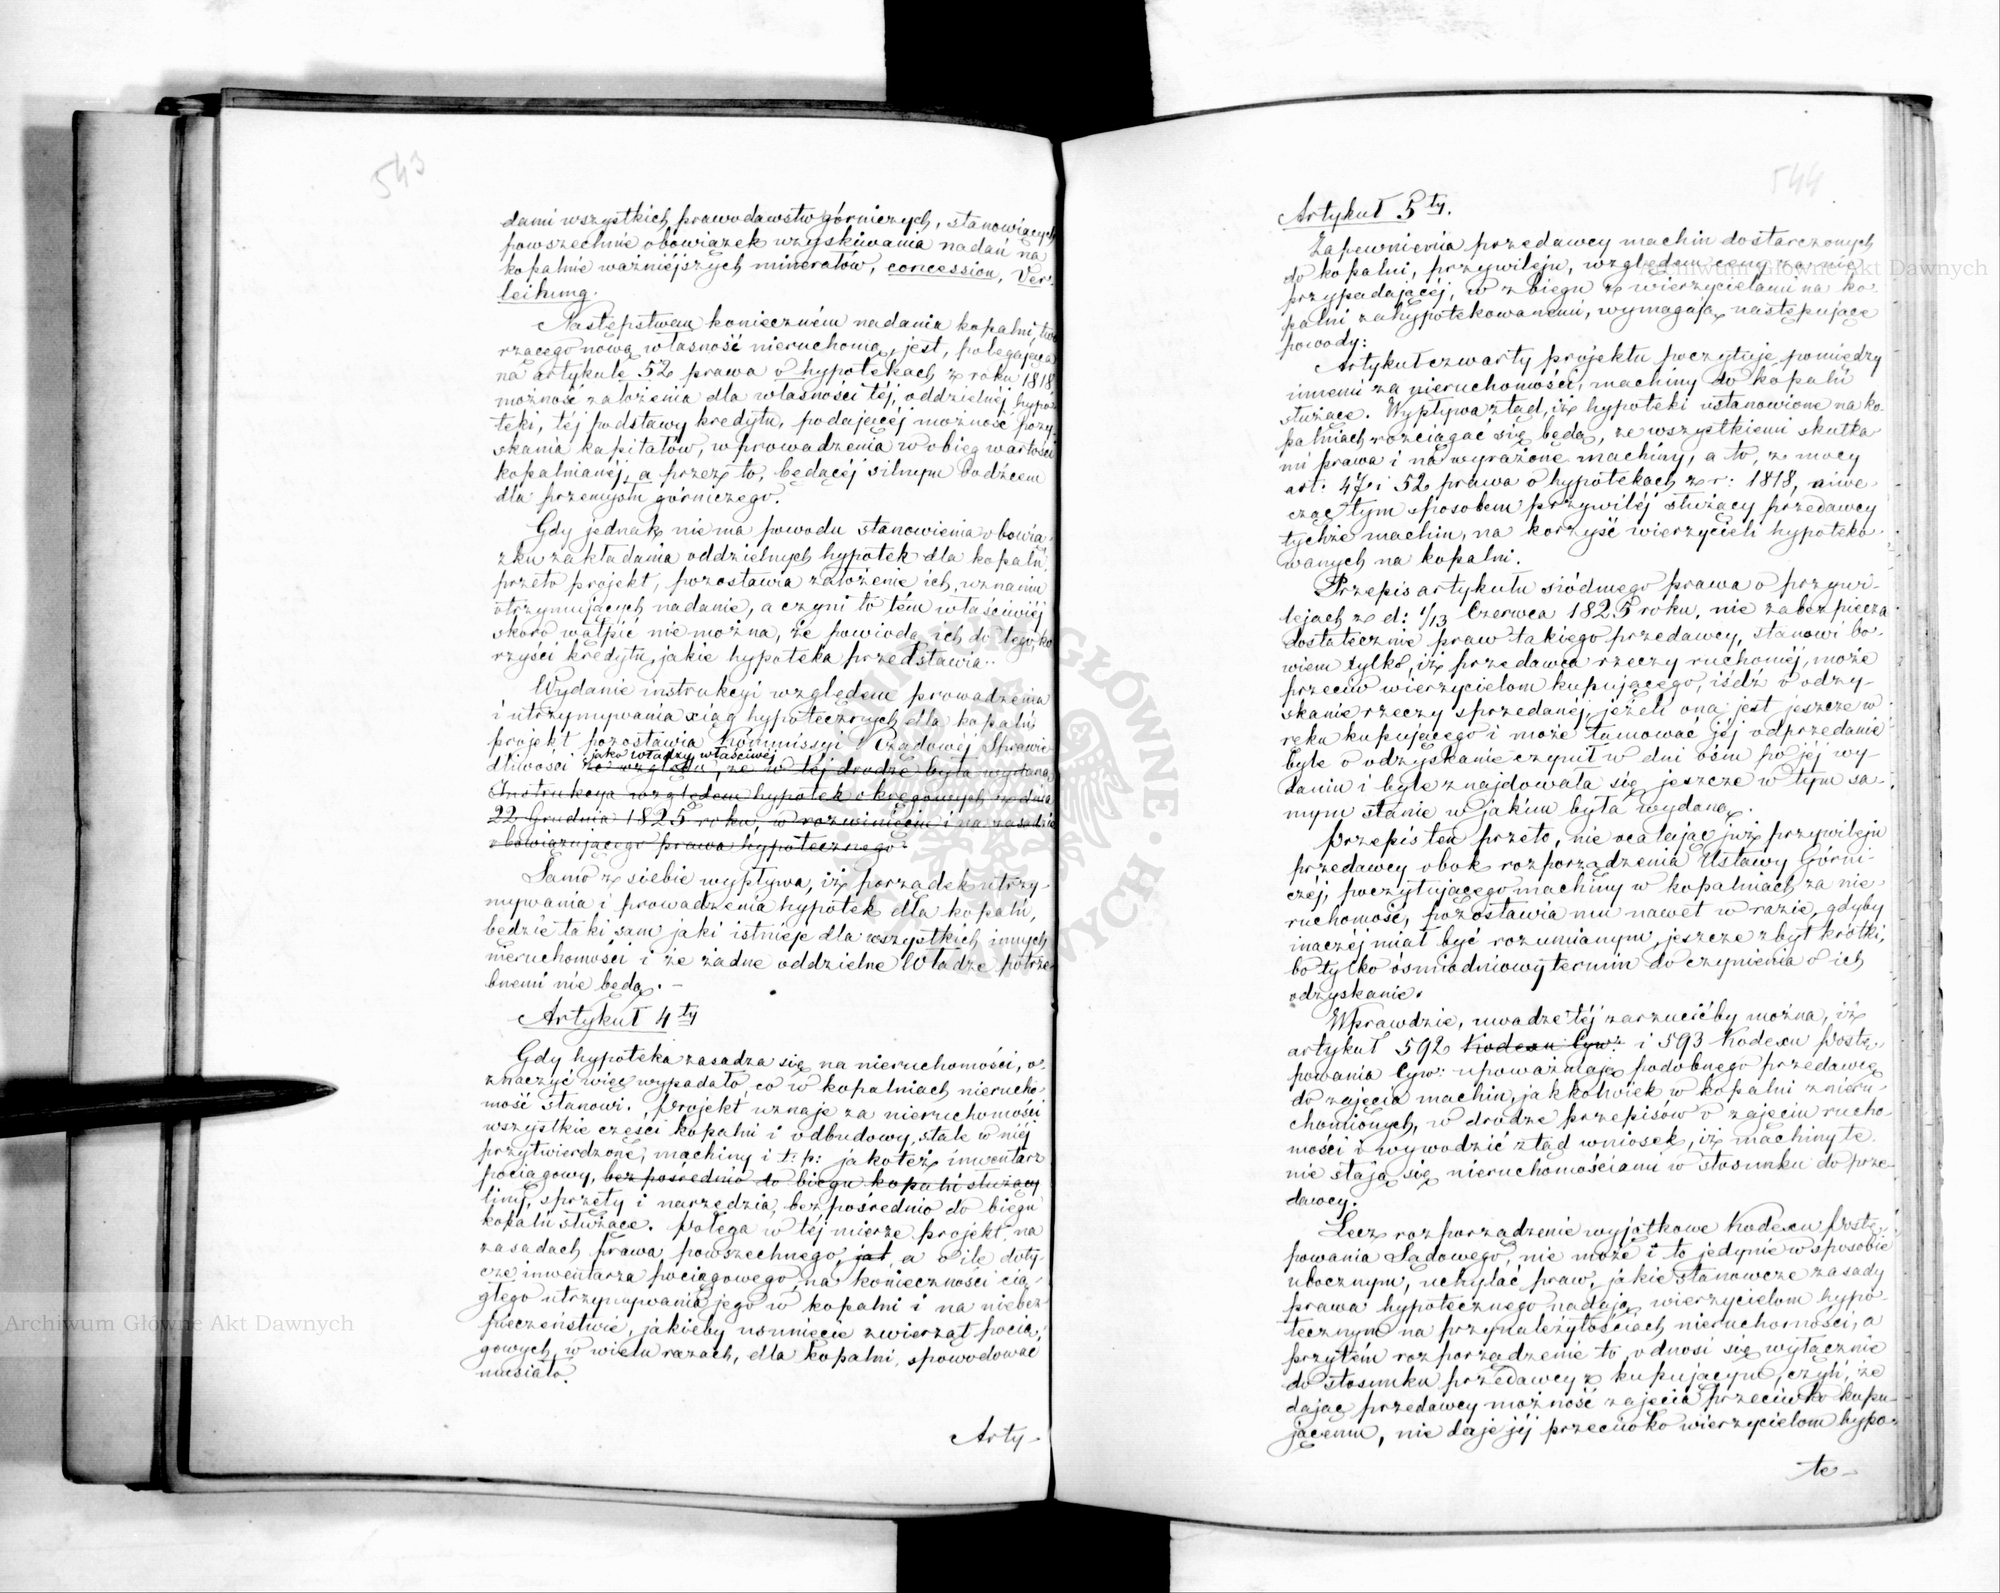 543
dami wszystkich prawodawstw górniczych, stanowiących
powszechnie obowiązek uzyskiwania nadań na
kopalnie ważniejszych minerałów, concession, Ver-
leihung.
Następstwem koniecznem nadania kopalni, two
rzącego nową własność nieruchomą, jest, polegająca
na artykule 52 prawa o hypotekach z roku 1818
możność założenia dla własności téj, oddzielnéj hypo-
teki, téj podstawy kredytu, podającéj możność pozy-
skania kapitałów, wprowadzenia w obieg wartości
kopalnianéj, a przez to, będącéj silnym bodźcem
dla przemysłu górniczego.
Gdy jednak nie ma powodu stanowienia obowią-
zku zakładania oddzielnych hypotek dla kopalń,
przeto projekt, pozostawia założenie ich, uznaniu
otrzymujących nadanie, a czyni to tém właściwiéj
skoro wątpić nie można, że powiodą ich do tego, ko
rzyści kredytu, jakie hypoteka przedstawia.
Wydanie instrukcyi względem prowadzenia
i utrzymywania xiąg hypotecznych dla kopalń
projekt pozostawia Kommissyi Rządowéj Sprawie
jako władzy właściwéj
dliwości ze względu, że w téj drodze była wydana
Instrukcya względem hypotek okręgowych z dnia
22 Grudnia 1825 roku, w rozwinięciu i na zasadzie
obowiązującego prawa hypotecznego.
Samo z siebie wypływa, iż porządek utrzy-
mywania i prowadzenia hypotek dla kopalń,
będzie taki sam jaki istnieje dla wszystkich innych
nieruchomości i że żadne oddzielne Władze potrze-
bnemi nie będą. -
Artykuł 4 ty
Gdy hypoteka zasadza się na nieruchomości, o-
znaczyć więc wypadało, co w kopalniach nierucho-
mość stanowi. Projekt uznaje za nieruchomości
wszystkie części kopalni i odbudowy, stale w niéj
przytwierdzone, machiny i t: p: jakoteż inwentarz
pociągowy, bezpośrednio do biegu kopalń służący
liny, sprzęty i narzędzia, bezpośrednio do biegu
kopalń służące. Polega w téj mierze projekt, na
zasadach prawa powszechnego, jat, a o ile doty-
cze inwentarza pociągowego, na konieczności cią-
głego utrzymywania jego w kopalni i na niebez-
pieczeństwie, jakieby usunięcie zwierząt pocią-
gowych, w wielu razach, dla kopalni, spowodować
musiało.
Arty-
544
Artykuł 5 ty.
Zapewnienia przedawcy machin dostarczonych
do kopalni, przywileju, względem ceny za nie
przypadającéj, w zbiegu z wierzycielami na ko-
palni zahypotekowanemi, wymagają następujące
powody:
Artykuł czwarty projektu poczytuje pomiędzy
innemi za nieruchomości, machiny do kopalń
służące. Wypływa ztąd, iż hypoteki ustanowione na ko-
palniach rozciągać się będą, ze wszystkiemi skutka-
mi prawa i na wyrażone machiny, a to, z mocy
art: 47 i 52 prawa o hypotekach z r: 1818, niwe
cząc tym sposobem przywiléj służący przedawcy
tychże machin, na korzyść wierzycieli hypoteko-
wanych na kopalni.
Przepis artykułu siódmego prawa o przywi-
lejach z d: 1/13 Czerwca 1825 roku, nie zabezpiecza
dostatecznie praw takiego przedawcy, stanowi bo-
wiem tylko, iż przedawca rzeczy ruchoméj, może
przeciw wierzycielom kupującego, iśdź o odzy-
skanie rzeczy sprzedanéj, jeżeli ona jest jeszcze w
ręku kupującego i może tamować jéj odprzedanie
byle o odzyskanie czynił w dni ośm po jéj wy-
daniu i byle znajdowała się jeszcze w tym sa-
mym stanie w jakim była wydaną.
Przepis ten przeto, nie ocalając już przywileju
przedawcy obok rozporządzenia Ustawy Górni-
czej, poczytującego machiny w kopalniach za nie-
ruchomość, pozostawia mu nawet w razie, gdyby
inaczéj miał być rozumianym, jeszcze zbyt krótki,
bo tylko ośmiodniowy termin do czynienia o ich
odzyskanie.
Wprawdzie, uwadze téj zarzucićby można, iż
artykuł 592 Kodexu Cyw: i 593 Kodexu Postę-
powania Cyw: upoważniają podobnego przedawcę
do zajęcia machin, jakkolwiek w kopalni znieru-
chomionych, w drodze przepisów o zajęciu rucho-
mości i wywodzić ztąd wniosek, iż machiny te
nie stają się nieruchomościami w stosunku do prze-
dawcy.
Lecz rozporządzenie wyjątkowe Kodexu Postę-
powania Sądowego, nie może i to jedynie w sposobie
ubocznym, uchylać praw, jakie stanowcze zasady
prawa hypotecznego nadają wierzycielom hypo-
tecznym na przynależytościach nieruchomości, a
przytém rozporządzenie to, odnosi się wyłącznie
do stosunku przedawcy z kupującym, czyli, że
dając przedawcy możność zajęcia przeciwko kupu-
jącemu, nie daje jéj przeciwko wierzycielom hypo-
te-
Archiwum Główne Akt Dawnych
Archiwum Główne Akt Dawnych